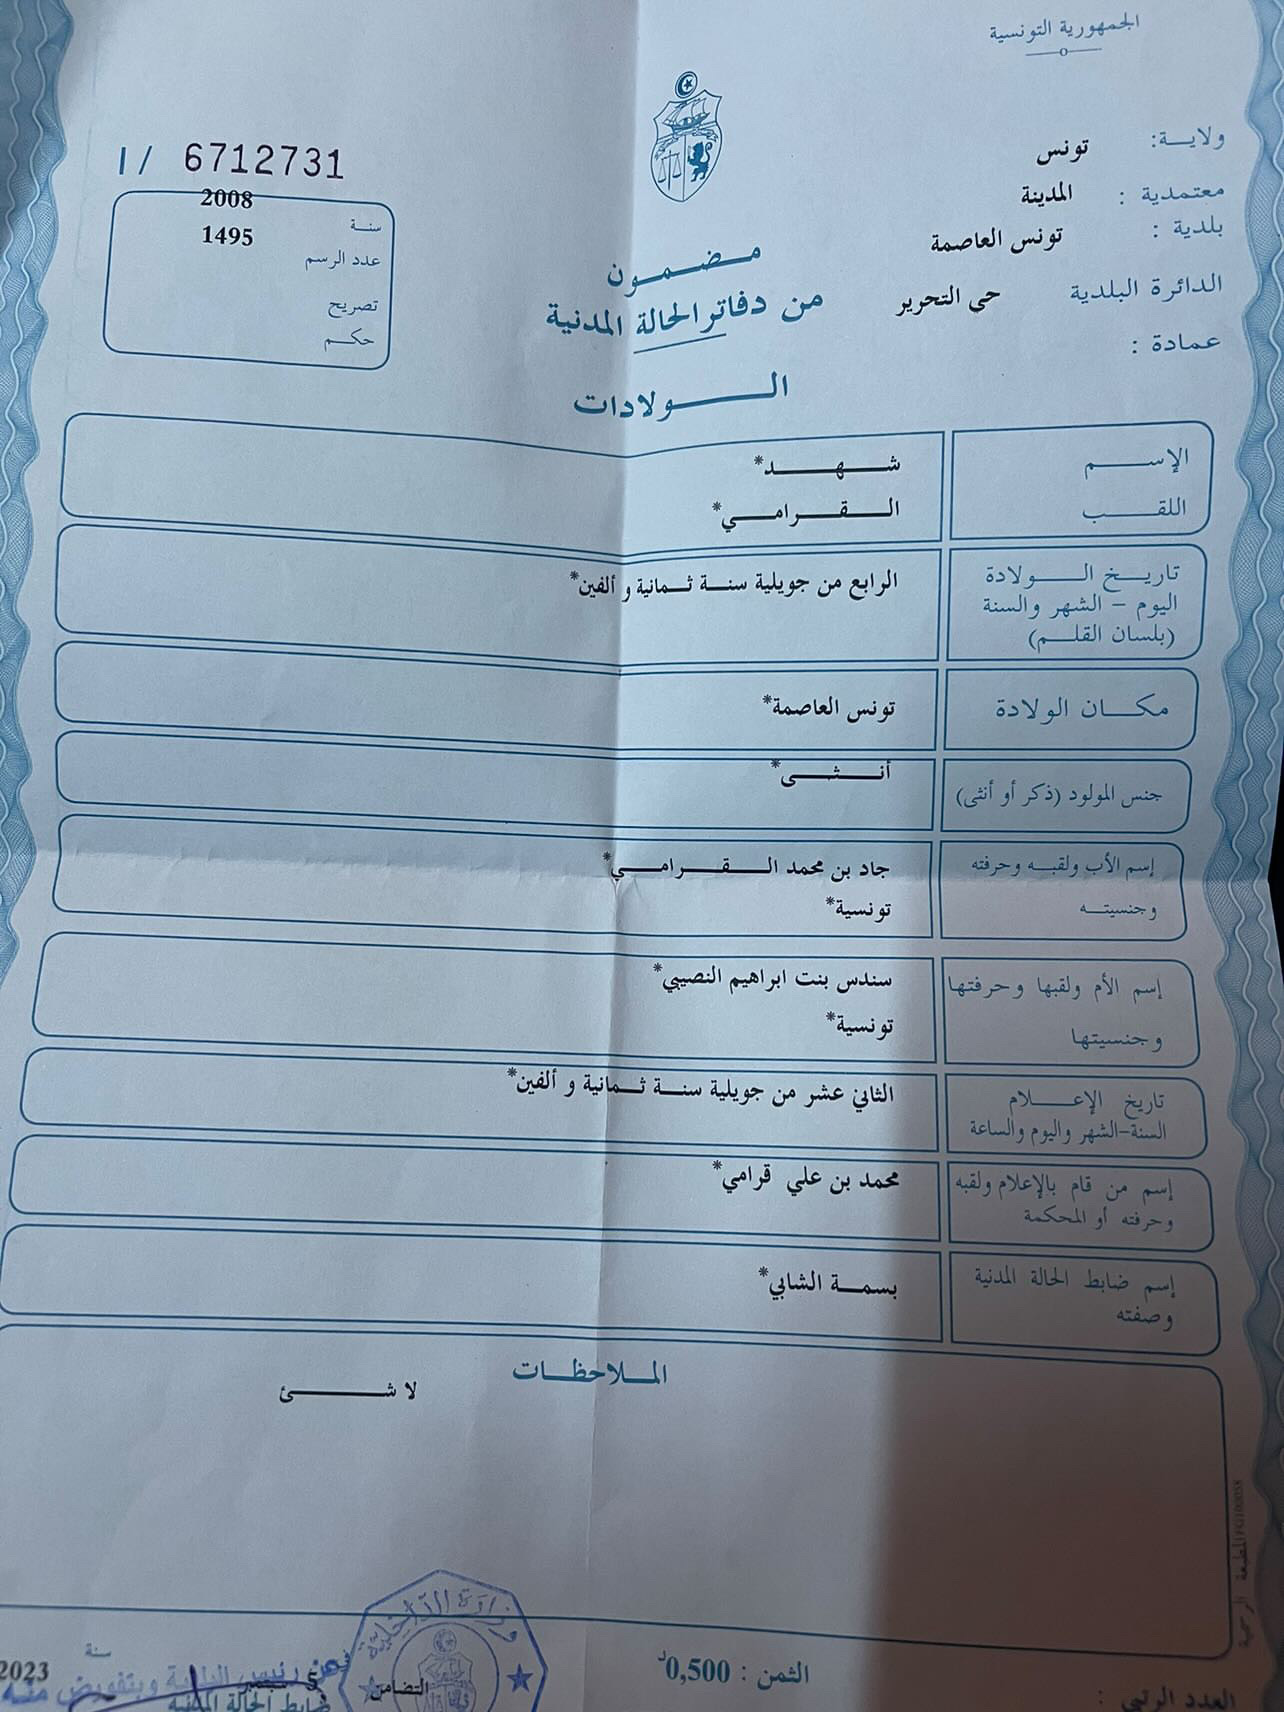 الجمهورية التونسية
ولايـة: تونس
معتمدية : المدينة
بلدية : تونس العاصمة
الدائرة البلدية حى التحرير
عمادة :
I/ 6712731
سنة 2008
عدد الرسم 1495
تصريح
حكم
مضمون
من دفاتر الحالة المدنية
الولادات
الإسم شهد*
اللقب القرامي*
تاريخ الولادة الرابع من جويلية سنة ثمانية و ألفين*
اليوم - الشهر والسنة
(بلسان القلم)
مكان الولادة تونس العاصمة*
جنس المولود (ذكر أو أنثى) أنثى*
إسم الأب ولقبه وحرفته جاد بن محمد القرامي*
وجنسيته تونسية*
إسم الأم ولقبها وحرفتها سندس بنت ابراهيم النصيبي*
وجنسيتها تونسية*
تاريخ الإعلام الثاني عشر من جويلية سنة ثمانية و ألفين*
السنة-الشهر واليوم والساعة
إسم من قام بالإعلام ولقبه محمد بن علي قرامي*
وحرفته أو المحكمة
إسم ضابط الحالة المدنية بسمة الشابي*
وصفته
الملاحظات
لا شئ
المطبعة الرسمية
وزارة الداخلية
الثمن : 0,500د
العدد الرتبي :
سنة 2023
عن رئيس البلدية وبتفويض منه
ضابط الحالة المدنية
التضامن